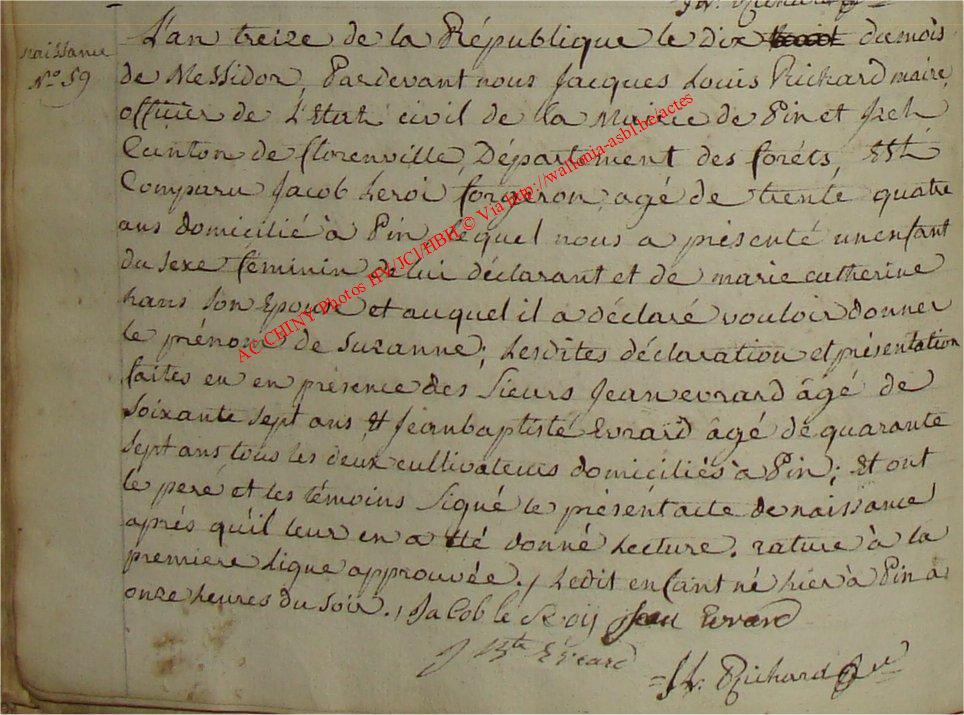 naissance
N.º 59
L'an treize de la République le dix dumois
de Messidor, Pardevant nous Jacques Louis Richard maire
officier de L'Etat civil de la Mairie de Pin et Izel
Canton de florenville, Département des foréts, Est
Comparu Jacob Leroi forgeron, agé de trente quatre
ans domicilié à Pin, Lequel nous a présenté un enfant
du sexe féminin de lui déclarant et de marie catherine
hans Son Epouse et auquel il a déclaré vouloir donner
le prénom de Suzanne; Lesdites déclaration et présentation
faites en en présence des Sieurs Jean evrard âgé de
soixante sept ans, & Jeanbaptiste Evrard âgé de quarante
sept ans, tous les deux cultivateurs domiciliés à Pin; Et ont
le pere et les témoins Signé le présent acte de naissance
après qu'il leur en a été donné Lecture. rature à la
premiere ligne approuvée./ Ledit enfant né hier à Pin à
onze heures du soir./ Jacob le Roij Jean Evrard
J Bte Evrard
JL. Richard
AC CHINY Photos HPL/JCJ/HBH © Via http://wallonia-asbl.be/actes